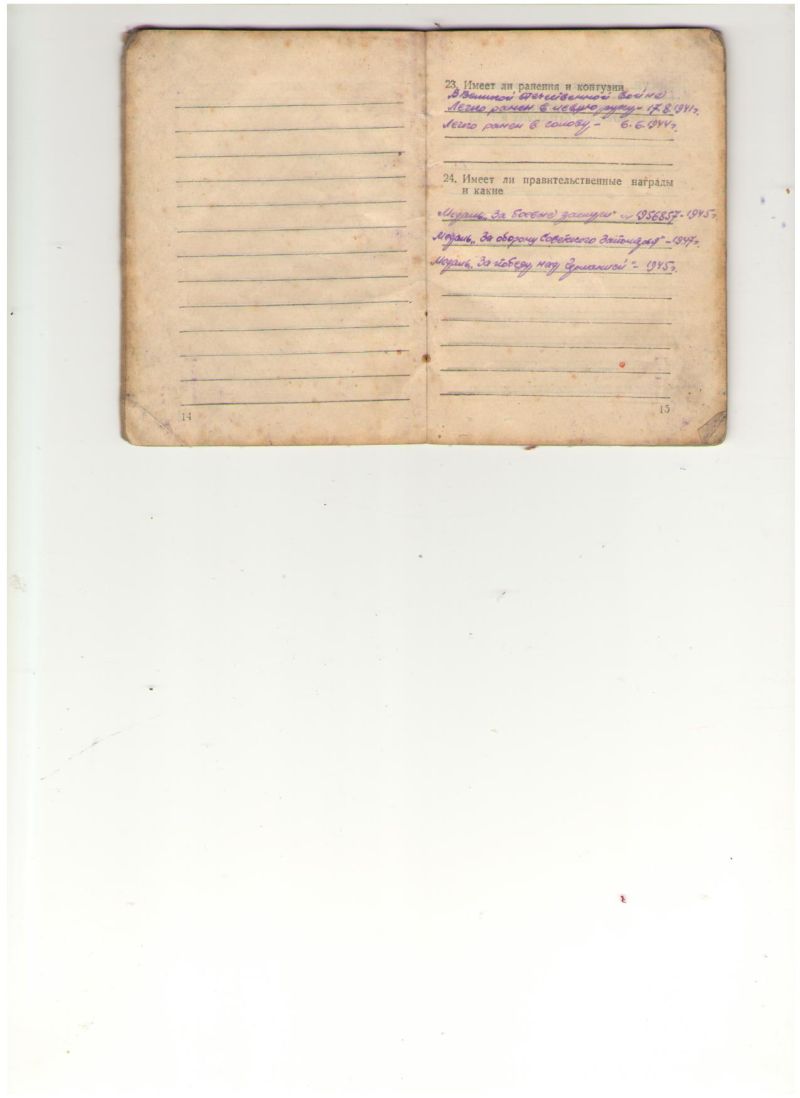 23. Имеет ли ранения и контузии
В Великой отечественной войне
Легко ранен в левую руку – 17.8.1941г.
Легко ранен в голову – 6.6.1944г.
24. Имеет ли правительственные награды
и какие
Медаль „За боевые заслуги" № 1956857 - 1945г.
Медаль „За оборону Советского Заполярья" - 1947г.
Медаль „За победу над Германией" - 1945г.
14
15